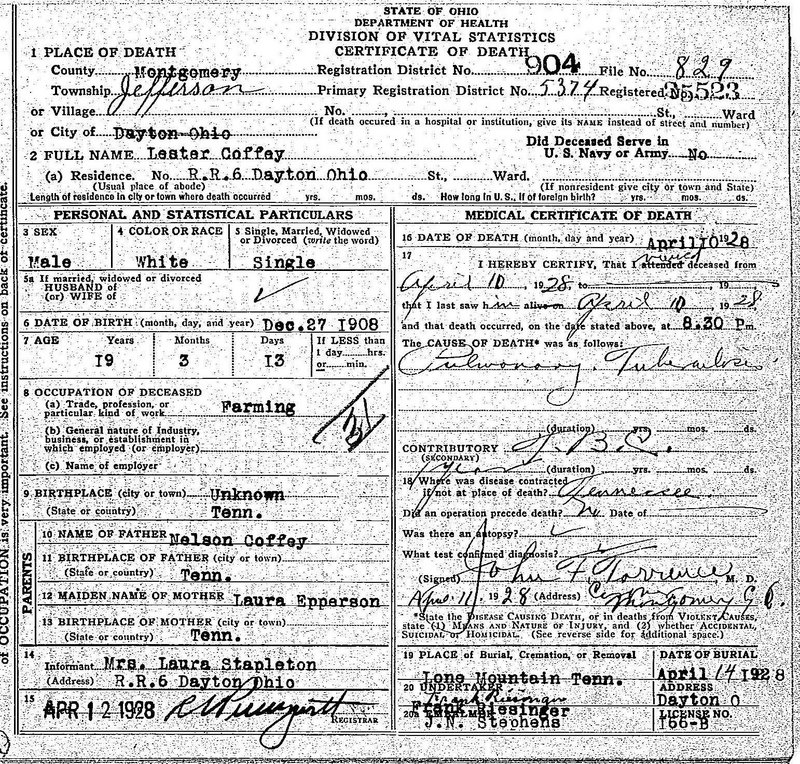 STATE OF OHIO
DEPARTMENT OF HEALTH
DIVISION OF VITAL STATISTICS
CERTIFICATE OF DEATH
1 PLACE OF DEATH
County Montgomery Registration District No. 904 File No. 829
Township Jefferson Primary Registration District No. 5374 Registered No. 35523
or Village No. St., Ward
(If death occured in a hospital or institution, give its NAME instead of street and number)
or City of Dayton Ohio
Did Deceased Serve in
2 FULL NAME Lester Coffey U. S. Navy or Army No
(a) Residence. No. R.R.6 Dayton Ohio St., Ward.
(Usual place of abode) (If nonresident give city or town and State)
Length of residence in city or town where death occurred yrs. mos. ds. How long in U. S., if of foreign birth? yrs. mos. ds.
PERSONAL AND STATISTICAL PARTICULARS
3 SEX 4 COLOR OR RACE 5 Single, Married, Widowed
or Divorced (write the word)
Male White Single
5a If married, widowed or divorced
HUSBAND of
(or) WIFE of
6 DATE OF BIRTH (month, day, and year) Dec. 27 1908
7 AGE Years Months Days If LESS than
1 day....hrs.
19 3 13 or....min.
8 OCCUPATION OF DECEASED
(a) Trade, profession, or
particular kind of work Farming
(b) General nature of Industry,
business, or establishment in
which employed (or employer)
(c) Name of employer
9 BIRTHPLACE (city or town) Unknown
(State or country) Tenn.
PARENTS
10 NAME OF FATHER Nelson Coffey
11 BIRTHPLACE OF FATHER (city or town)
(State or country) Tenn.
12 MAIDEN NAME OF MOTHER Laura Epperson
13 BIRTHPLACE OF MOTHER (city or town)
(State or country) Tenn.
14
Informant Mrs. Laura Stapleton
(Address) R.R.6 Dayton Ohio
15
APR 12 1928
REGISTRAR
MEDICAL CERTIFICATE OF DEATH
16 DATE OF DEATH (month, day and year) April 10 1928
17 viewed
I HEREBY CERTIFY, That I attended deceased from
April 10, 1928 to , 19
that I last saw him alive on April 10, 1928
and that death occurred, on the date stated above, at 8.30 Pm.
The CAUSE OF DEATH* was as follows:
Pulmonary Tuberculosis
(duration) yrs. mos. ds.
CONTRIBUTORY T.B.C.
(SECONDARY)
(duration) yrs. mos. ds.
18 Where was disease contracted
if not at place of death? Tennessee
Did an operation precede death? No Date of
Was there an autopsy?
What test confirmed diagnosis?
(Signed) John F Torrence, M. D.
Apr. 11, 1928 (Address) Montgomery
*State the DISEASE CAUSING DEATH, or in deaths from VIOLENT CAUSES,
state (1) MEANS AND NATURE OF INJURY, and (2) whether ACCIDENTAL,
SUICIDAL or HOMICIDAL. (See reverse side for additional space.)
19 PLACE OF Burial, Cremation, or Removal DATE OF BURIAL
Lone Mountain Tenn. April 14 1928
20 UNDERTAKER ADDRESS
Frank Riesinger Dayton O
Frank Riesinger
20a EMBALMER LICENSE NO.
J.N. Stephens 166-B
of OCCUPATION is very important. See instructions on back of certificate.